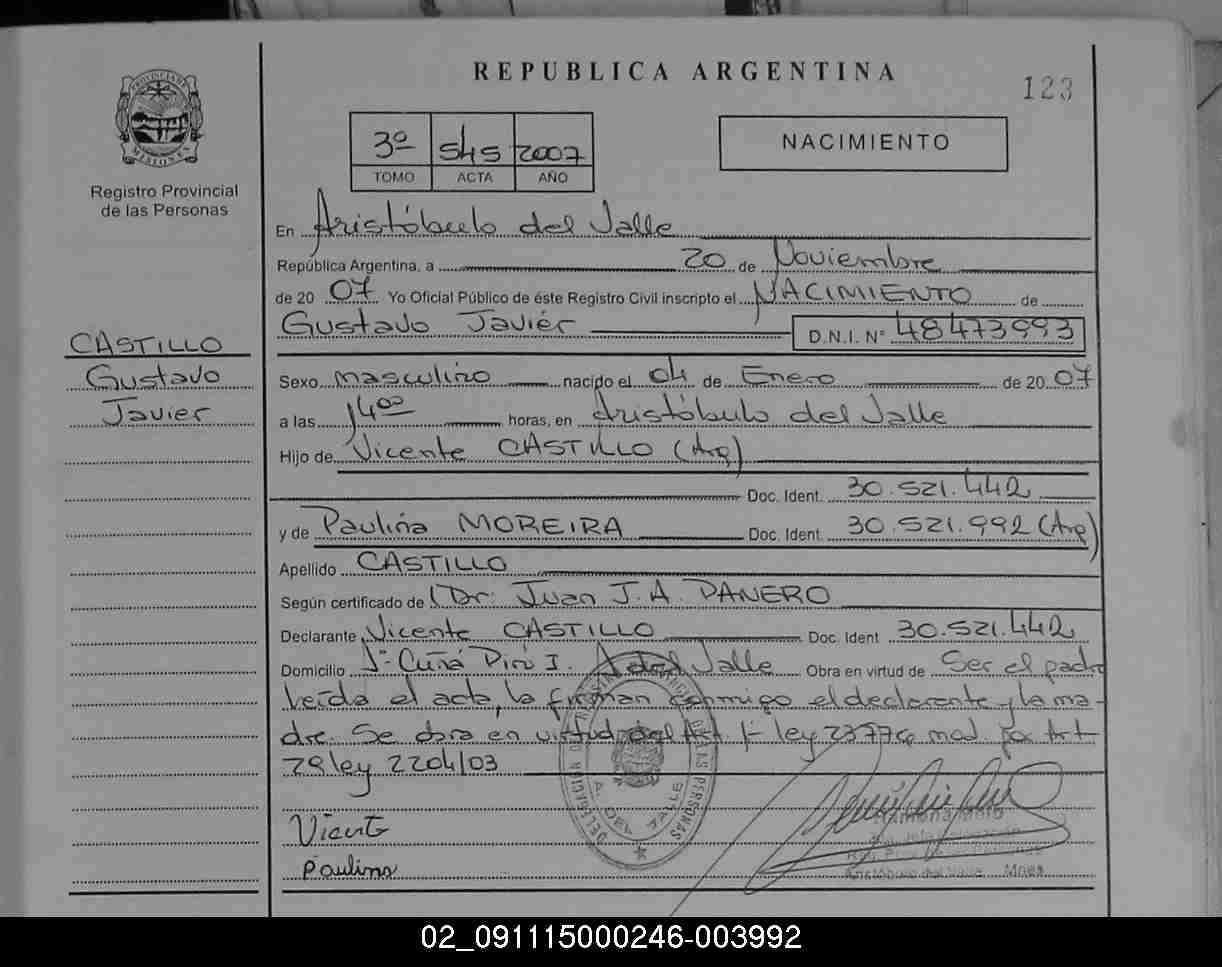 REPUBLICA ARGENTINA
123
PROVINCIA DE MISIONES
Registro Provincial
de las Personas
3º 545 2007
TOMO ACTA AÑO
NACIMIENTO
En Aristóbulo del Valle
República Argentina, a 20 de Noviembre
de 20 07 Yo Oficial Público de éste Registro Civil inscripto el NACIMIENTO de
Gustavo Javiér D.N.I. Nº 48473993
CASTILLO
Gustavo
Javier
Sexo masculino nacido el 04 de Enero de 20 07
a las 14⁰⁰ horas, en Aristóbulo del Valle
Hijo de Vicente CASTILLO (Arg)
Doc. Ident. 30.521.442
y de Paulina MOREIRA Doc. Ident. 30.521.992 (Arg)
Apellido CASTILLO
Según certificado de Dr. Juan J. A. DANERO
Declarante Vicente CASTILLO Doc. Ident 30.521.442
Domicilio Vº Cuñá Pirú I. A del Valle Obra en virtud de Ser el padre
Leída el acta, la firman conmigo el declarante y la ma-
dre. Se obra en virtud del Art. 1º ley 2377 mod. por Art
29 ley 2204/03
Vicente
Paulina
DELEGACION DE LAS PERSONAS
A. DEL VALLE
Ramona
Aristóbulo del Valle Mnes
02_091115000246-003992